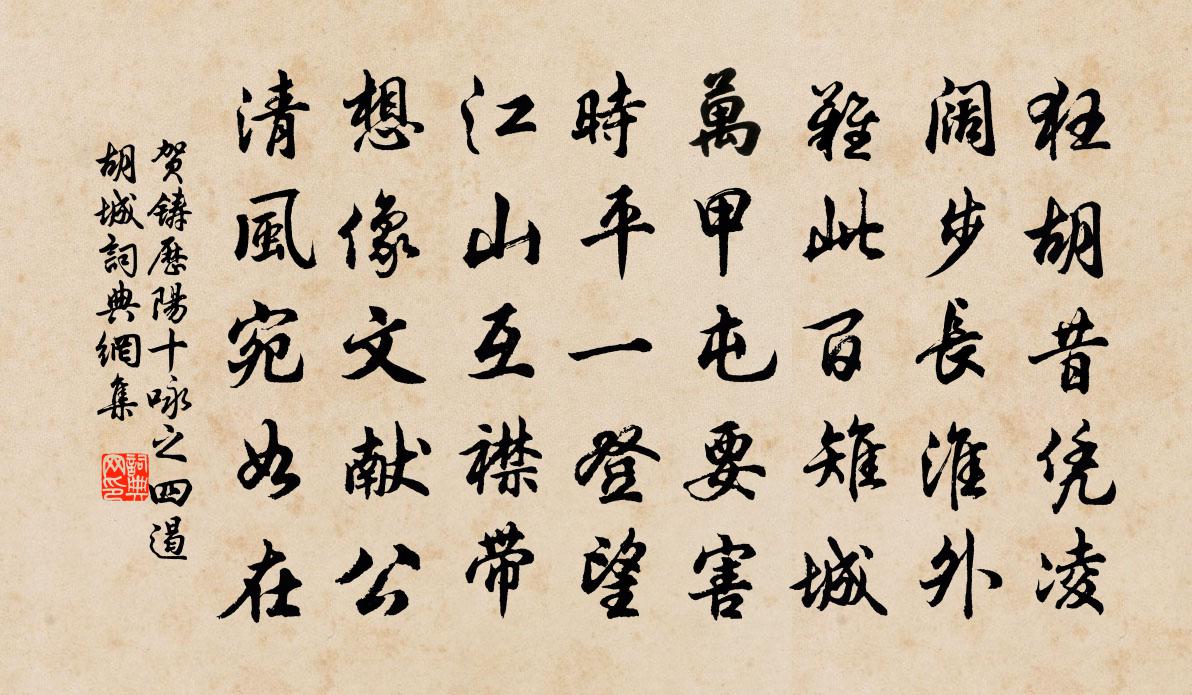 狂胡昔凭凌
阔步長淮外
難此百雉城
萬甲屯要害
時平一登望
江山互襟带
想像文献公
清風宛如在
贺鑄歷陽十咏之四遏
胡城詞典網集
詞典网印